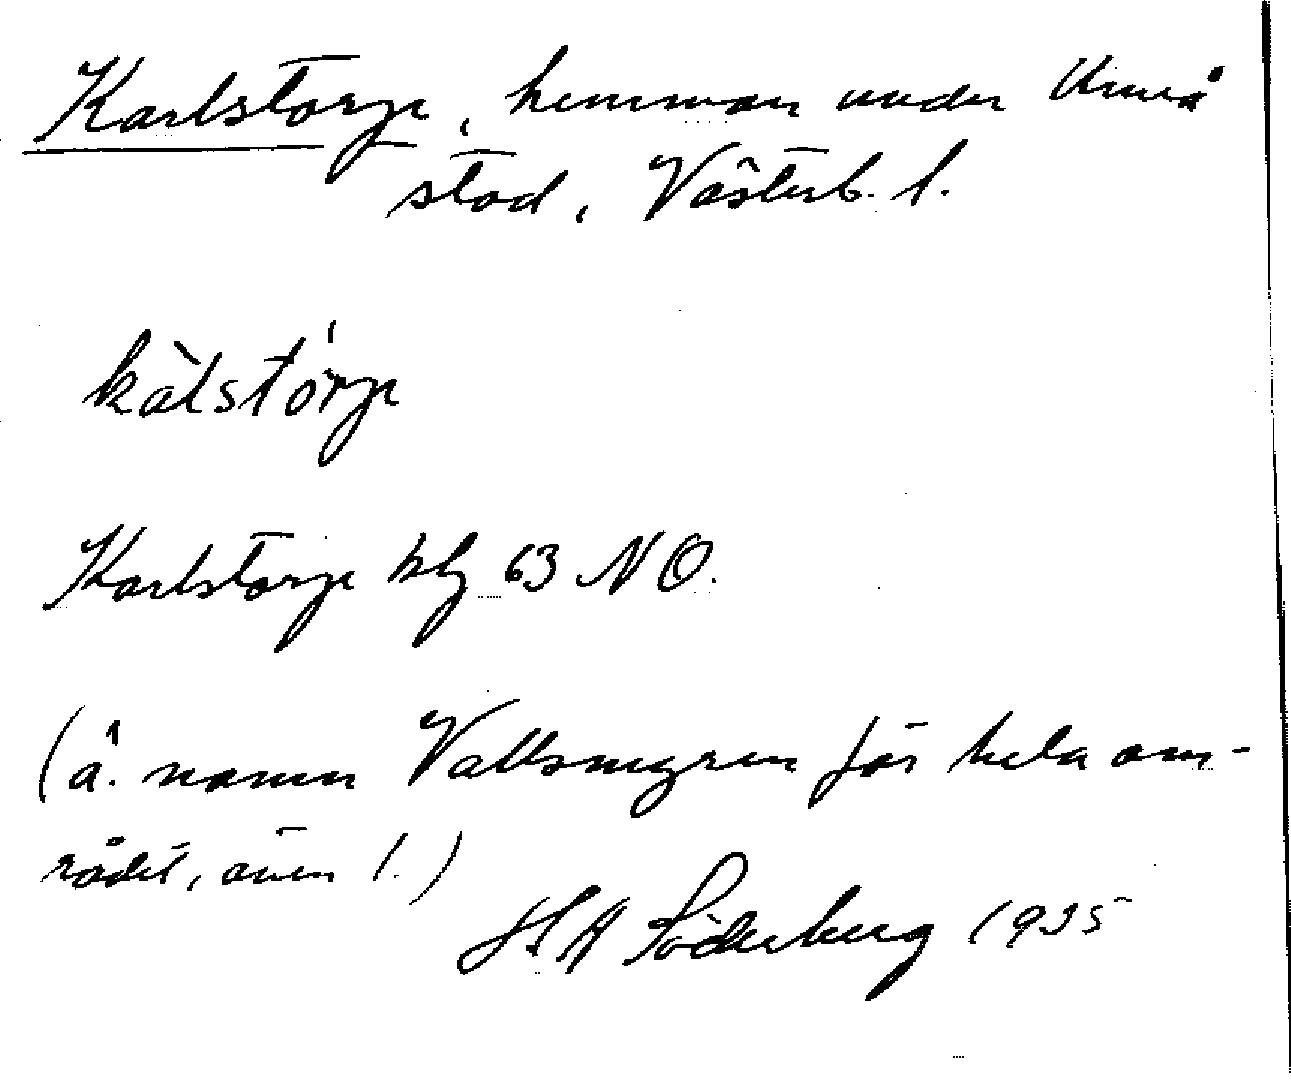 Karlstorp, hemman under Umeå
stad, Västerb. l.
kàlstórp
Karlstorp blg 63 NO.
(ä. namn Vallsmyren för hela om-
rådet, även l.)
H A Söderberg 1935